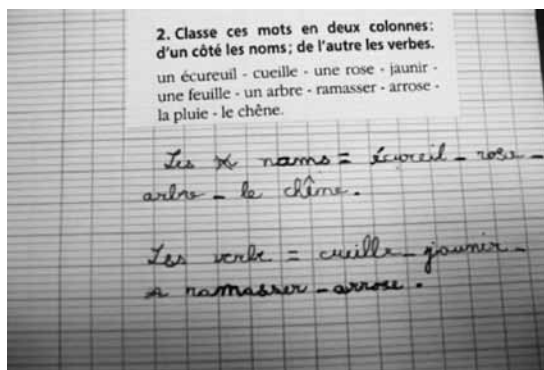 2. Classe ces mots en deux colonnes:
d'un côté les noms; de l'autre les verbes.
un écureuil - cueille - une rose - jaunir -
une feuille - un arbre - ramasser - arrose -
la pluie - le chêne.
Les noms = écureil - rose -
arbre - le chêne.
Les verbe = cueille - jaunir -
ramasser - arrose.